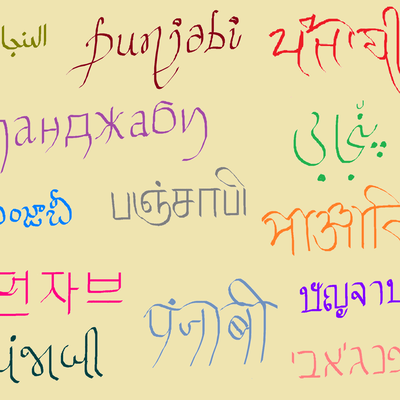 البنجا
Punjabi
ਪੰਜਾਬੀ
панджаби
پنجابی
ంజాబీ
பஞ்சாபி
펀자브
पंजाबी
ปัญจาบ
પંજાબી
פנג'אבי